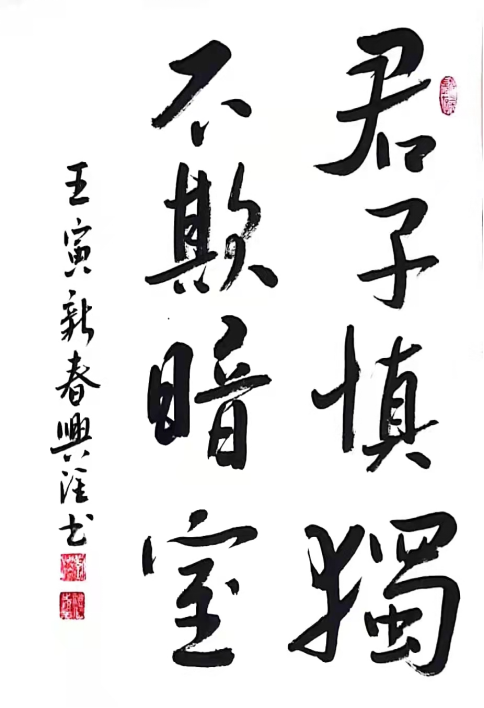 君子慎獨
不欺暗室
壬寅新春興淮书